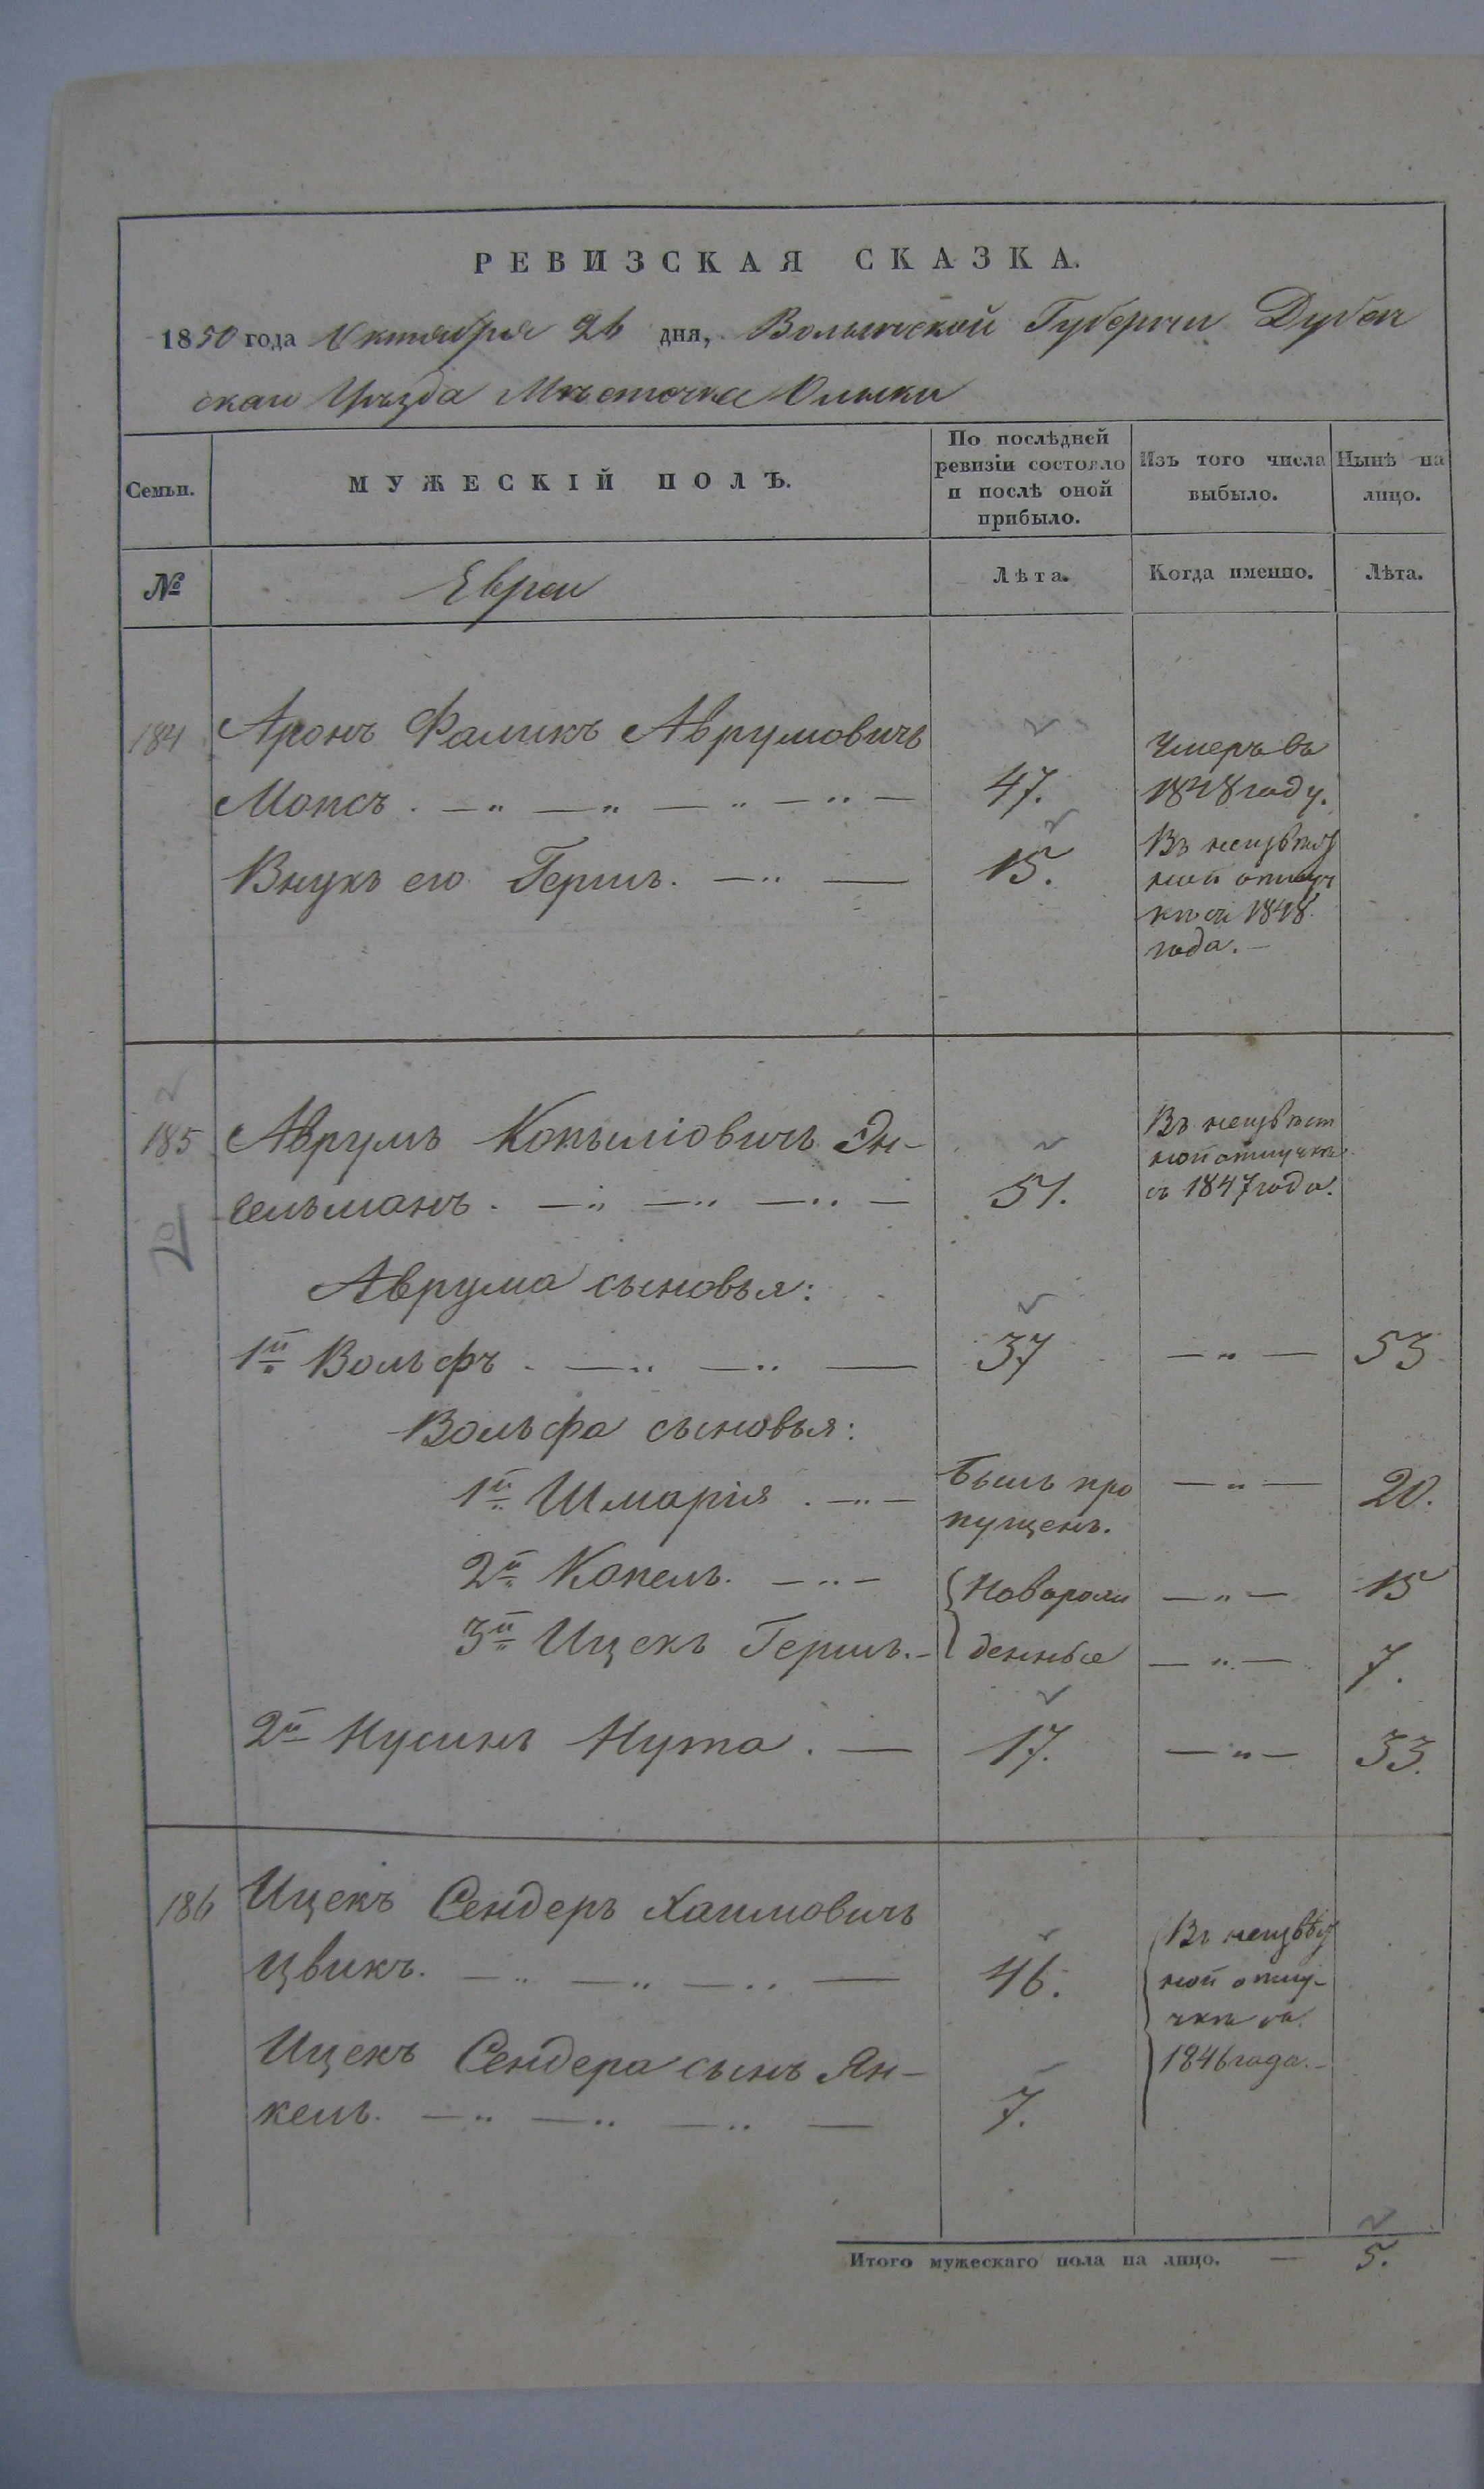 РЕВИЗСКАЯ СКАЗКА.
1850 года Октября 26 дня, Волынской Губернии Дубен
скаго Уѣзда Мѣстечка Олыки
Семьи.
МУЖЕСКІЙ ПОЛЪ.
По послѣдней
ревизіи состояло
и послѣ оной
прибыло.
Изъ того числа
выбыло.
Нынѣ на
лицо.
№
Евреи
Лѣта.
Когда именно.
Лѣта.
184 Аронъ Фаликъ Аврумовичъ
Умеръ въ
Мопсъ. — " — " — " — " — 47. 1848 году.
Внукъ его Гершъ. — " — 15.
Въ неизвѣст
ной отлуч
кѣ съ 1848
года. —
185 Аврумъ Копыліовичъ Эн-
сельманъ. — " — " — " — 51.
Въ неизвѣст
ной отлучкѣ
съ 1847 года.
Аврума сыновья:
1й Вольфъ. — " — " — 37 — " — 53
Вольфа сыновья:
1й Шмарія. — " — Былъ про
пущенъ. — " — 20.
2й Копель. — " — Новорож — " — 15
3й Ицекъ Гершъ. — денные — " — 7.
2й Нусинъ Нута. — 17. — " — 33.
186 Ицекъ Сендеръ Хаимовичъ
Цвикъ. — " — " — " — 46.
Ицекъ Сендера сынъ Ян-
кель. — " — " — " — 7.
Въ неизвѣст
ной отлу-
чкѣ съ
1846 года. —
Итого мужескаго пола на лицо. — 5.